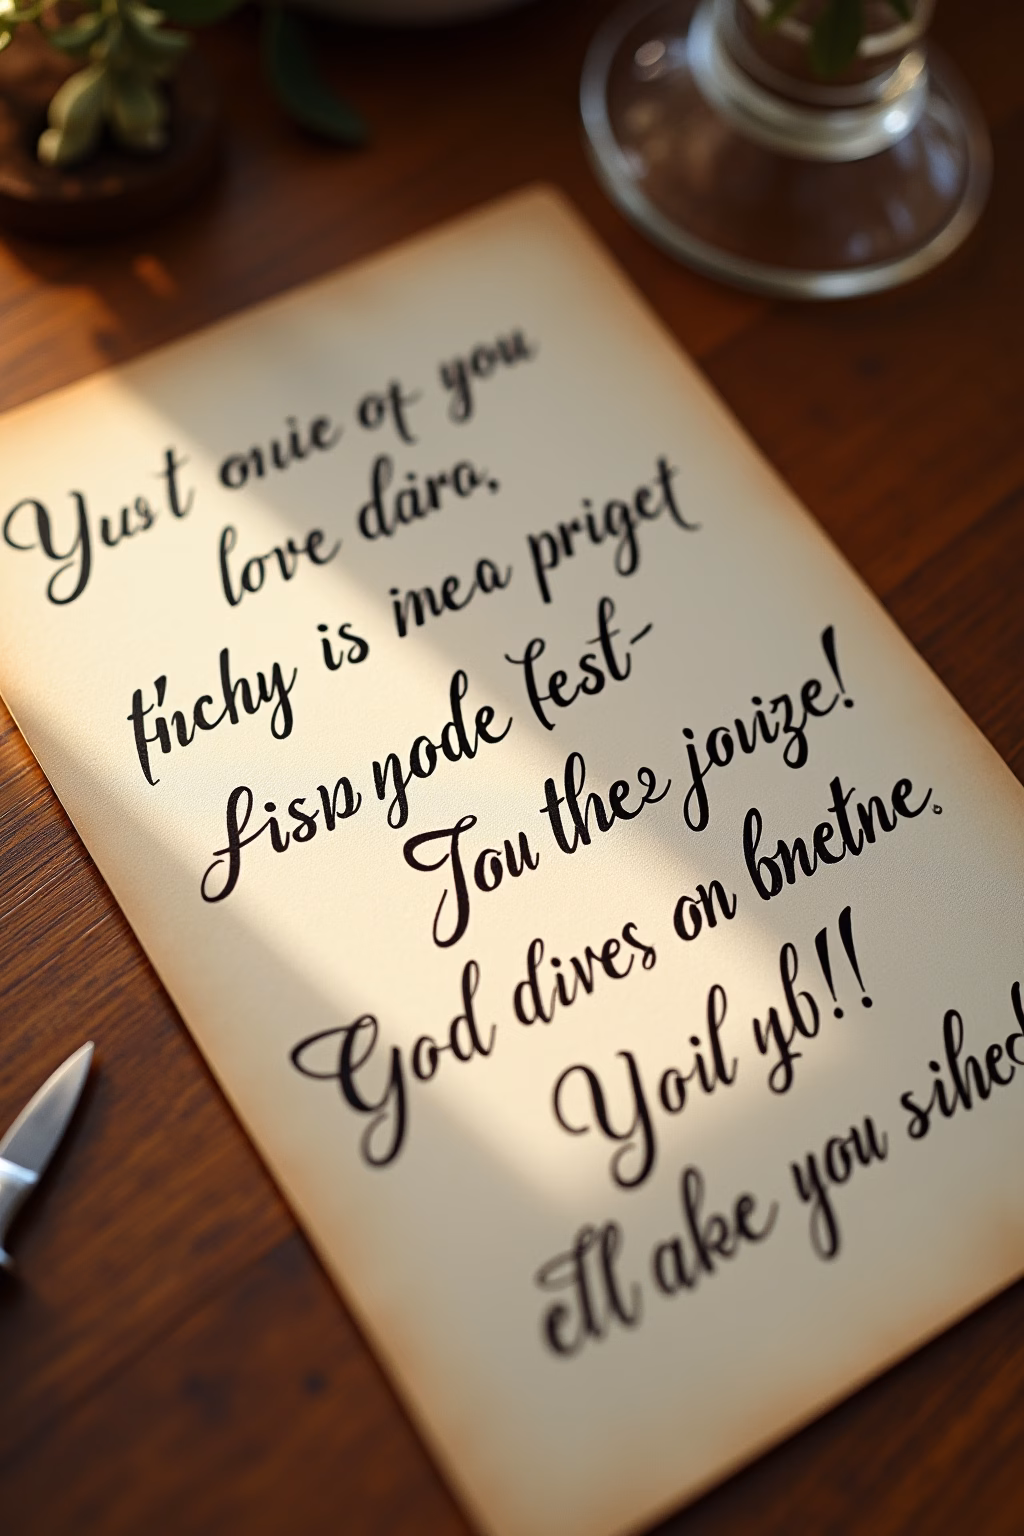 Yust onuie of you
love dára,
t'nchy is inea priget
fisn yode Test-
Jou thee jouize!
God dives on bnetne.
Yoil yb!!
ell ake you sihed